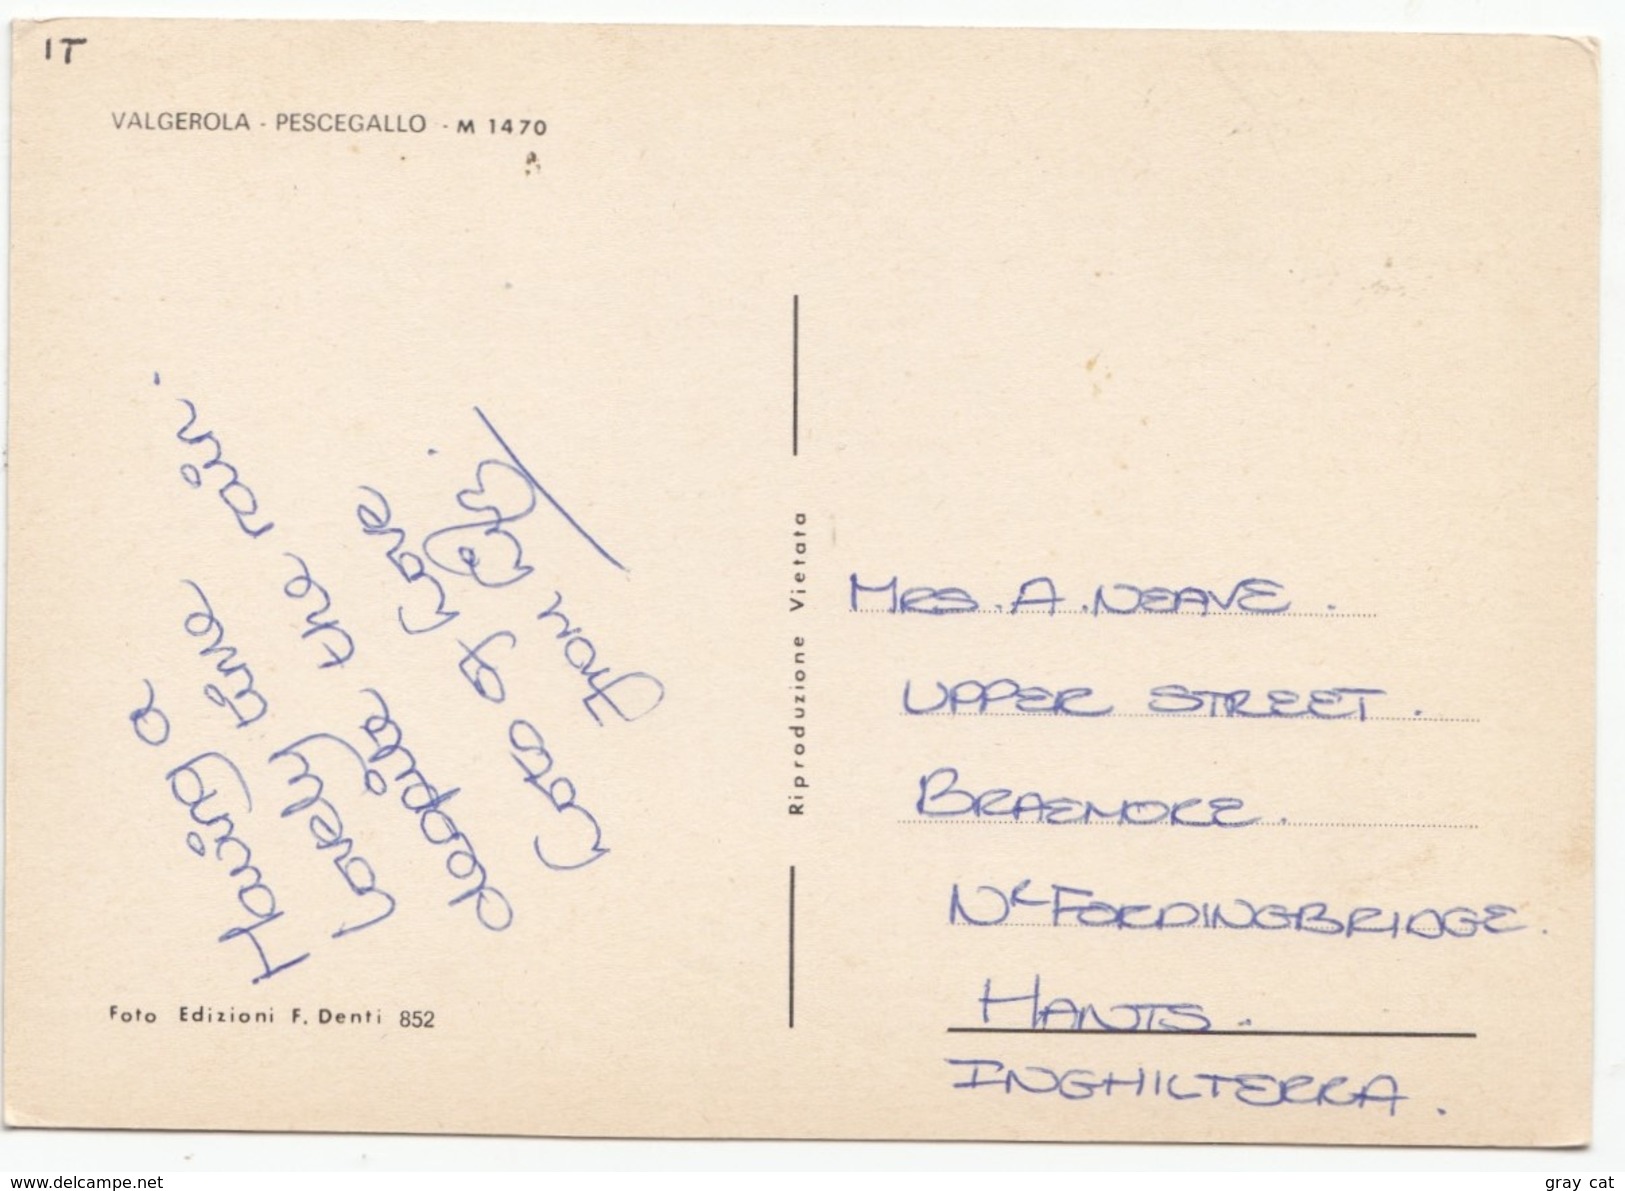 IT
VALGEROLA - PESCEGALLO - M 1470
Having a
lovely time
despite the rain.
Lots of Love
from
Foto Edizioni F. Denti 852
Riproduzione Vietata
MRS. A. NEAVE.
UPPER STREET.
BRAEMORE.
NR FORDINGBRIDGE.
HANTS.
INGHILTERRA.
www.delcampe.net
gray cat